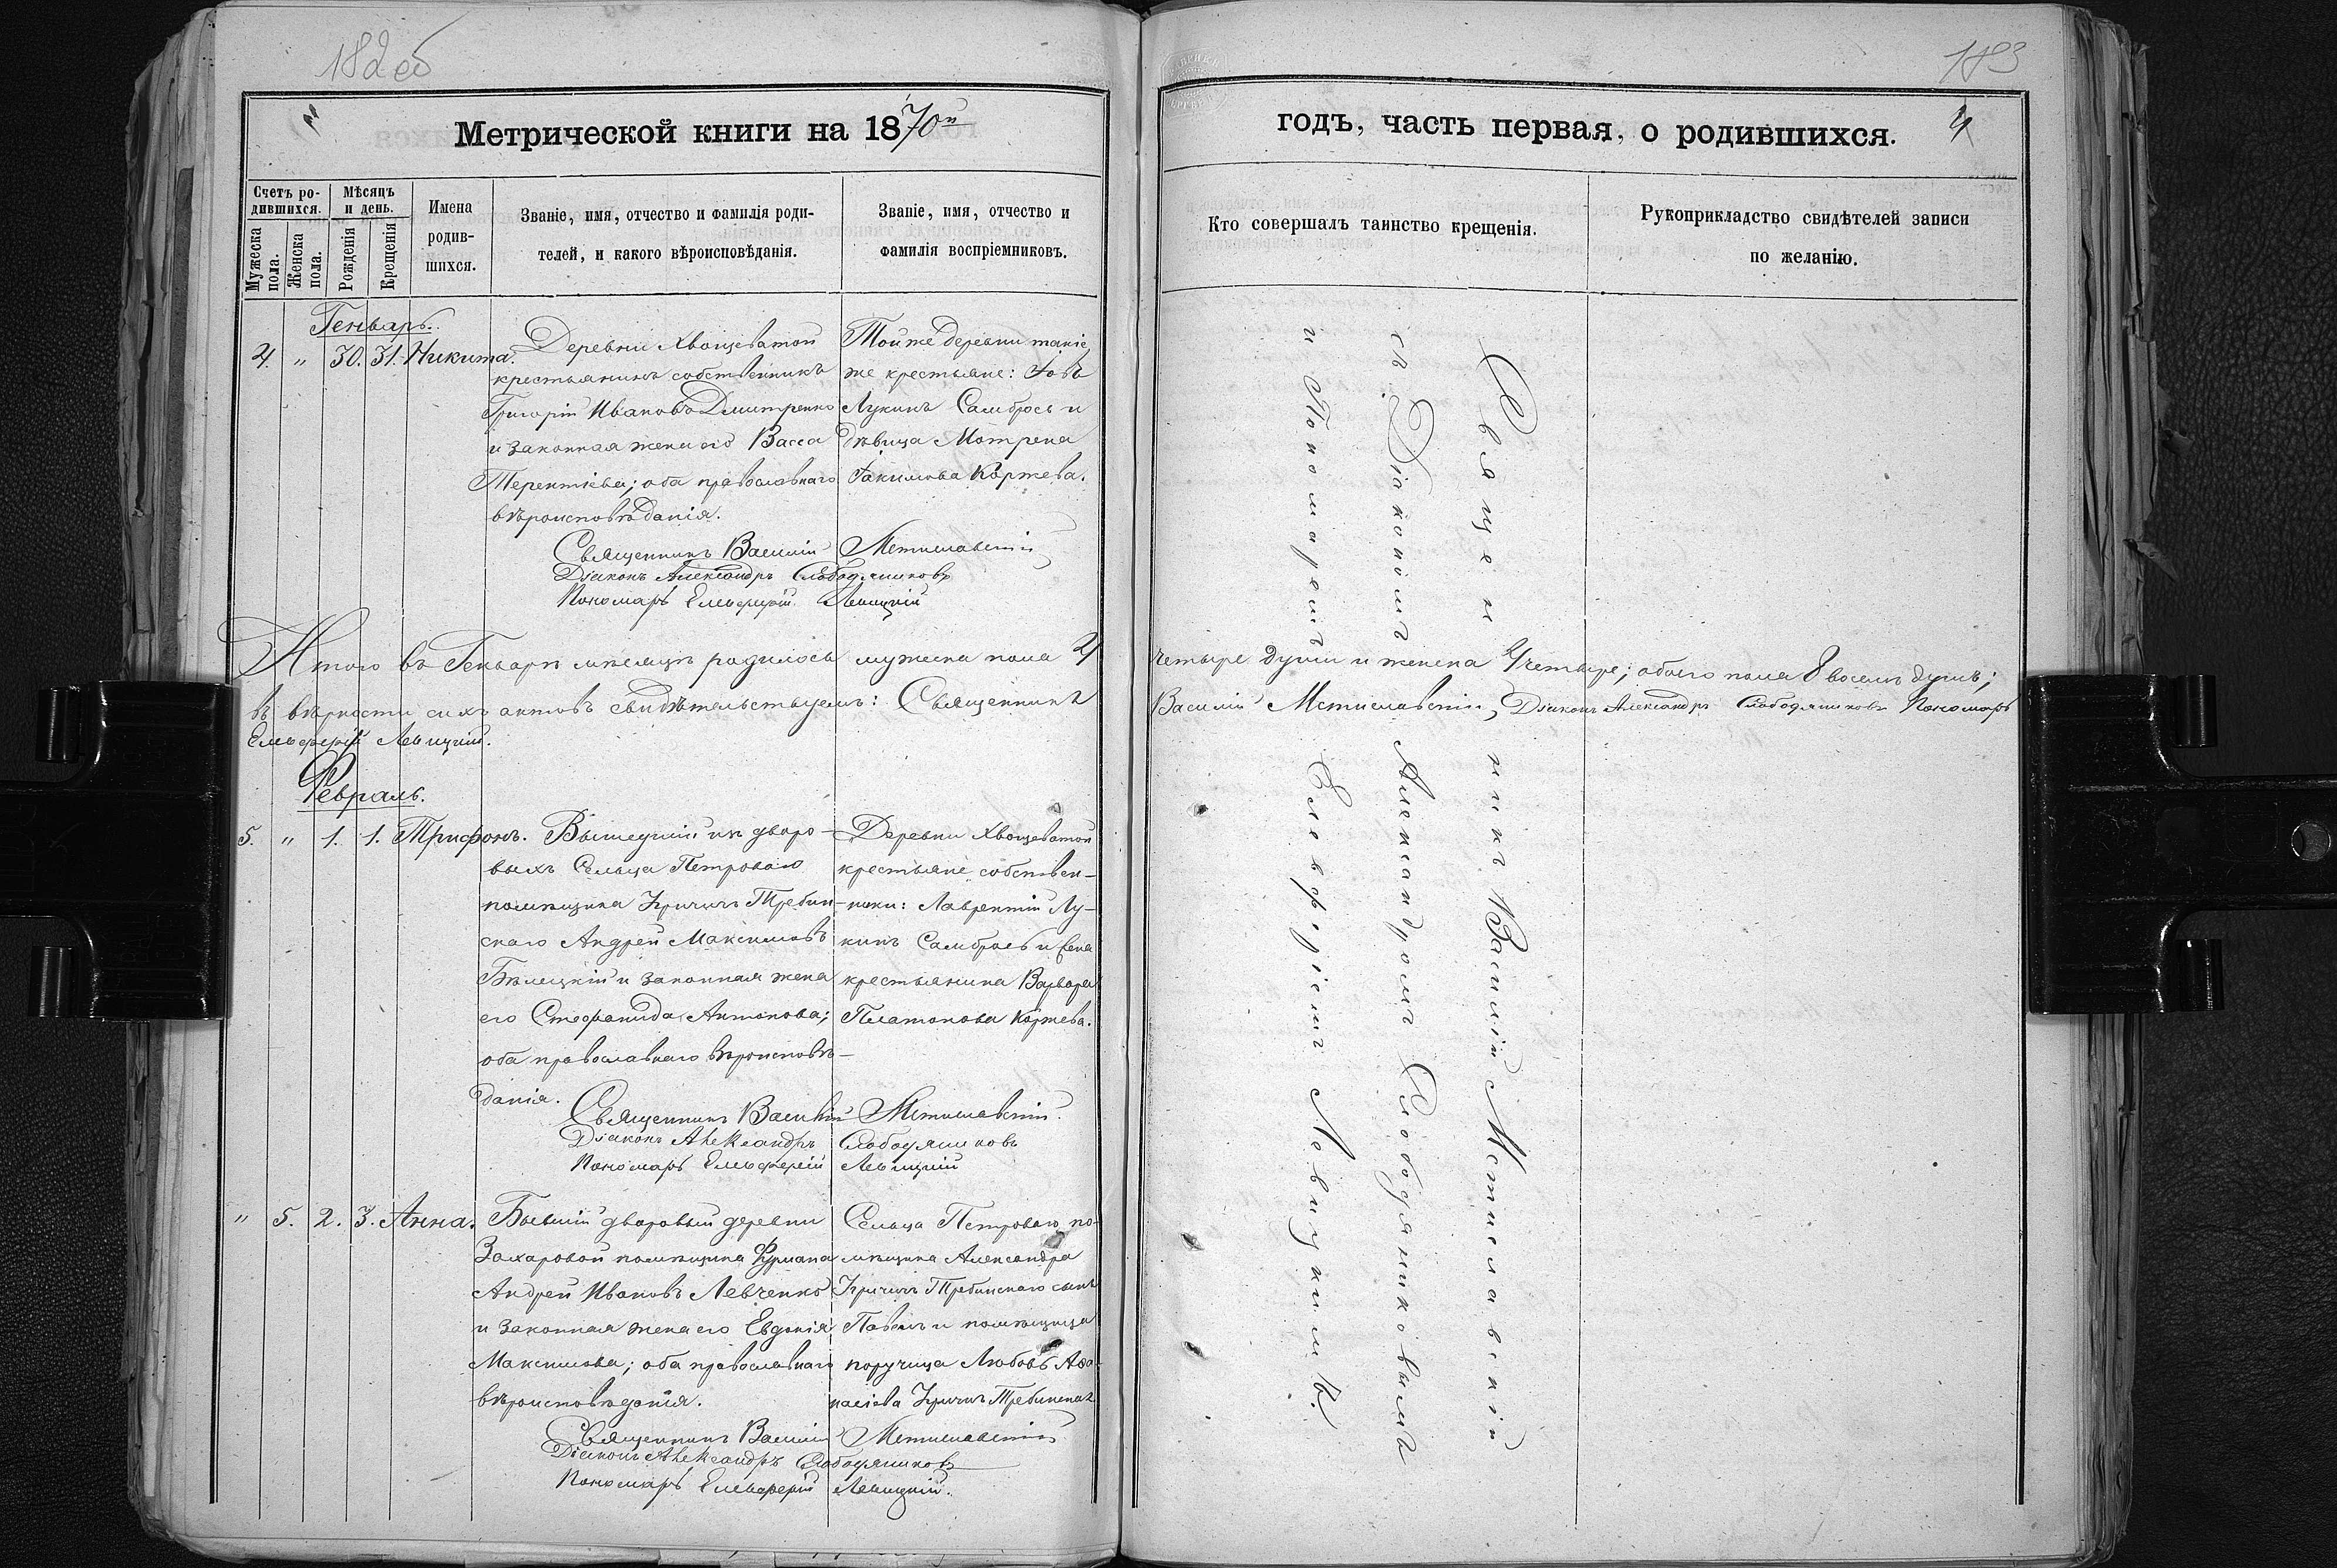 182 об
Метрической книги на 1870й
Счетъ ро-
дившихся.
Мѣсяцъ
и день.
Мужеска
пола.
Женска
пола.
Рожденія
Крещенія
Имена
родив-
шихся.
Званіе, имя, отчество и фамилія роди-
телей, и какого вѣроисповѣданія.
Званіе, имя, отчество и
фамилія воспріемниковъ.
Генварь.
4. " 30. 31. Никита.
Деревни Хвощеватой
крестьянинъ собственникъ
Григорій Ивановъ Дмитренко
и законная жена его Васса
Терентіева; оба православнаго
вѣроисповѣданія.
Той же деревни такіе
же крестьяне: Іовъ
Лукинъ Самбросъ и
дѣвица Мотрена
Іакимова Коржева.
Священникъ Василій Мстиславскій
Діаконъ Александръ Слободяниковъ
Пономарь Елевферій Левицкій
Итого въ Генварѣ мѣсяцѣ родилось мужеска пола 4
въ вѣрности сихъ актовъ свидѣтельствуемъ: Священникъ
Елевферій Левицкій.
Февраль.
5. " 1. 1. Трифонъ.
Вышедшій изъ дворо-
выхъ Сельца Петроваго
помѣщика Кричичъ Требин-
скаго Андрей Максимовъ
Бѣлецкій и законная жена
его Стефанида Антонова;
оба православнаго вѣроисповѣ-
данія.
Деревни Хвощеватой
крестьяне собствен-
ники: Лаврентій Лу-
кинъ Самбросъ и жена
крестьянина Варвара
Платонова Коржева.
Священникъ Василій Мстиславскій.
Діаконъ Александръ Слободяниковъ
Пономарь Елевферій Левицкій
" 5. 2. 3. Анна.
Бывшій дворовый деревни
Захаровой помѣщика Фурмана
Андрей Ивановъ Левченко
и законная жена его Евдокія
Максимова; оба православнаго
вѣроисповѣданія.
Сельца Петроваго по-
мѣщика Александра
Кричичъ Требинскаго сынъ
Павелъ и помѣщица
поручица Любовь Аѳа-
насіева Кричичъ Требинская
Священникъ Василій Мстиславскій
Діаконъ Александръ Слободяниковъ
Пономарь Елевферій Левицкій.
183
годъ, часть первая, о родившихся.
4
Кто совершалъ таинство крещенія.
Рукоприкладство свидѣтелей записи
по желанію.
Священникъ Василій Мстиславскій
съ Діакономъ Александромъ Слободяниковымъ
и Пономаремъ Елевферіемъ Левицкимъ.
четыре души и женска 4 четыре; обоего пола 8 восемь душъ;
Василій Мстиславскій, Діаконъ Александръ Слободяниковъ Пономарь